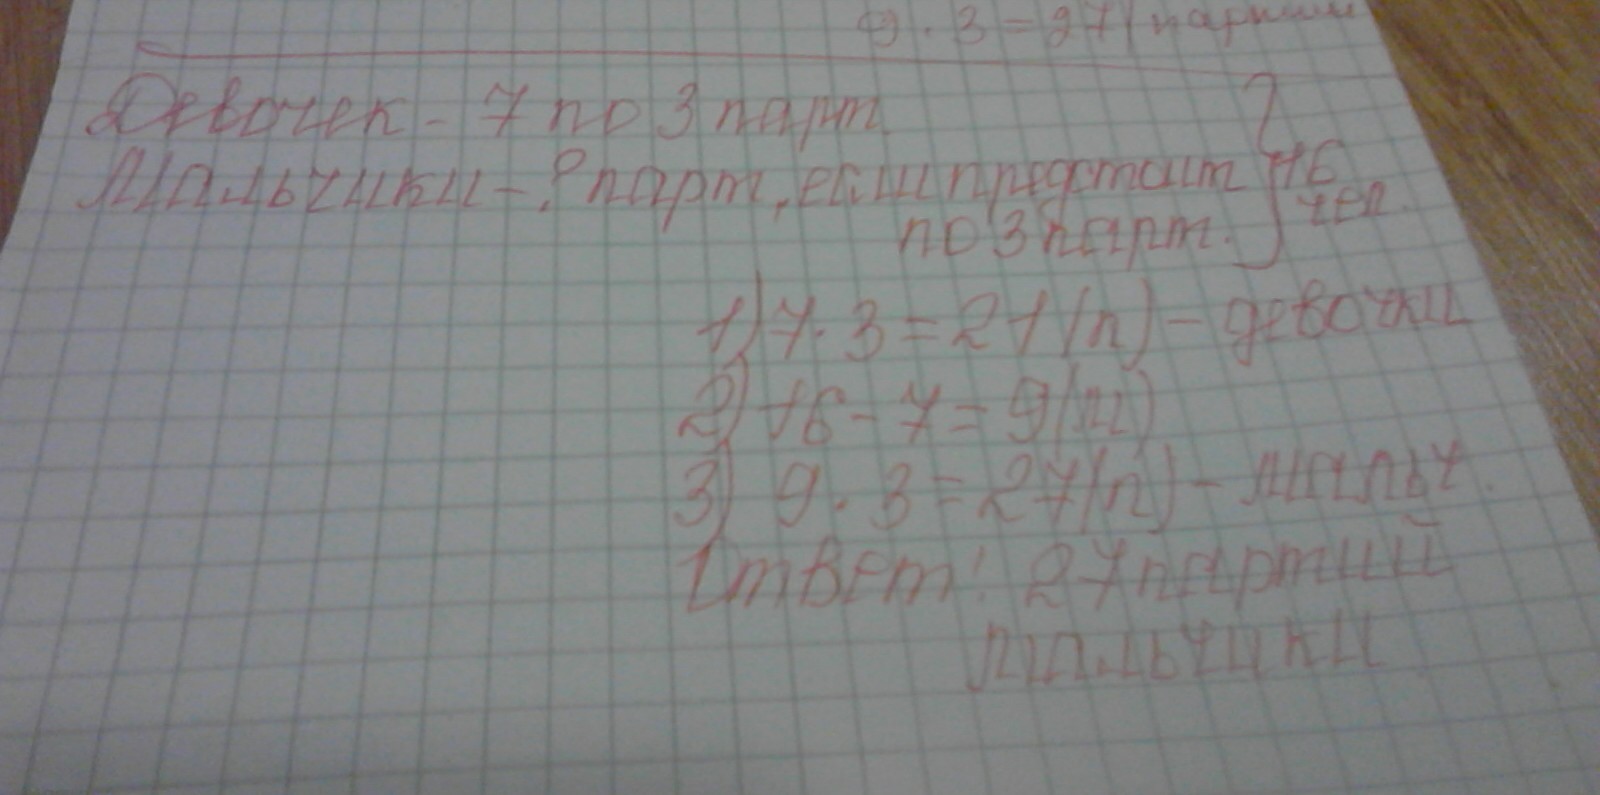 9 · 3 = 27 (партии
Девочек - 7 по 3 парт.
Мальчики - ? парт., если предстоит
16
чел.
по 3 парт.
1) 7 · 3 = 21 (п) - девочки
2) 16 - 7 = 9 (м)
3) 9 · 3 = 27 (п) - мальч.
Ответ: 27 партий
мальчики